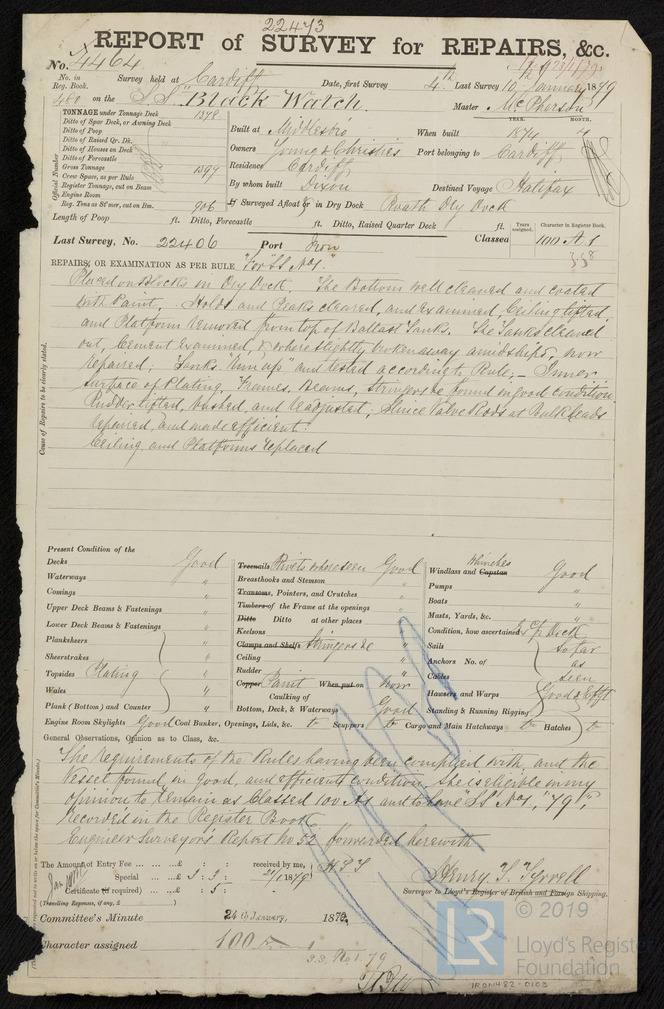 22473
REPORT of SURVEY for REPAIRS, &c.
No. 4464
No. in Reg. Book. Survey held at Cardiff Date, first Survey 4th Last Survey 10th January 1879
480 on the S.S. "Black Watch" Master McPherson
TONNAGE under Tonnage Deck 1378
Ditto of Spar Deck, or Awning Deck
Ditto of Poop
Ditto of Raised Qr. Dk.
Ditto of Houses on Deck
Ditto of Forecastle
Gross Tonnage 1399
Crew Space, as per Rule
Register Tonnage, cut on Beam
Engine Room
Reg. Tons as St'mer, cut on Bm. 906
Official Number
YEAR. MONTH.
Built at Middlesbro When built 1874 4
Owners Young & Christies Port belonging to Cardiff
Residence Cardiff
By whom built Dixon Destined Voyage Halifax
If Surveyed Afloat or in Dry Dock Roath Dry Dock
Length of Poop ft. Ditto, Forecastle ft. Ditto, Raised Quarter Deck ft.
Years assigned. Character in Register Book.
Last Survey, No. 22406 Port Iron Classed 100 A 1
338
REPAIRS, OR EXAMINATION AS PER RULE For SS No 1.
Placed on Blocks in Dry Dock, The Bottom well cleaned and coated
with Paint. Holds and Peaks cleared, and examined, Ceiling lifted,
and Platform removed from top of Ballast Tanks. The Tanks cleaned
out, Cement examined, & where slightly broken away amidships, now
repaired; Tanks "run up" and tested according to Rule; — Inner
surface of Plating, Frames, Beams, Stringers &c found in good condition
Rudder lifted, bushed, and readjusted; Sluice Valve Rods at Bulkheads
repaired, and made efficient.
Ceiling and Platforms replaced
Cause of Repairs to be clearly stated.
Present Condition of the
Decks Good
Waterways "
Comings "
Upper Deck Beams & Fastenings "
Lower Deck Beams & Fastenings "
Planksheers "
Sheerstrakes "
Topsides Plating "
Wales "
Plank (Bottom) and Counter "
Treenails Rivets where seen Good
Breasthooks and Stemson "
Transoms, Pointers, and Crutches "
Timbers of the Frame at the openings "
Ditto Ditto at other places "
Keelsons "
Clamps and Shelfs Stringers &c "
Ceiling "
Rudder "
Copper Paint When put on Now
Caulking of
Bottom, Deck, & Waterways Good
Winches
Windlass and Capstan Good
Pumps "
Boats "
Masts, Yards, &c. "
Condition, how ascertained Exp Deck
Sails so far
Anchors No. of as
Cables seen
Hawsers and Warps Good & Efft
Standing & Running Rigging
Engine Room Skylights Good Coal Bunker, Openings, Lids, &c. Do Scuppers Do Cargo and Main Hatchways Do Hatches Do
General Observations, Opinion as to Class, &c.
The requirements of the Rules having been complied with, and the
Vessel found in good, and efficient condition. She is eligible in my
opinion to remain as Classed 100 A1 and to have "SS" No 1, "79",
recorded in the Register Book
Engineer Surveyor's Report No. 52 forwarded herewith
The Amount of Entry Fee £ : : received by me, H S T
Special £ 3 : 3 : 21/1 1879
Certificate (if required) : 5 :
(Travelling Expenses, if any, £ )
Henry S. Tyrrell
Surveyor to Lloyd's Register of British and Foreign Shipping.
Committee's Minute 24th January, 1879.
Character assigned 100 A 1
S.S. No. 1. 79
© 2019
LR
Lloyd's Register
Foundation
IRON482-0103